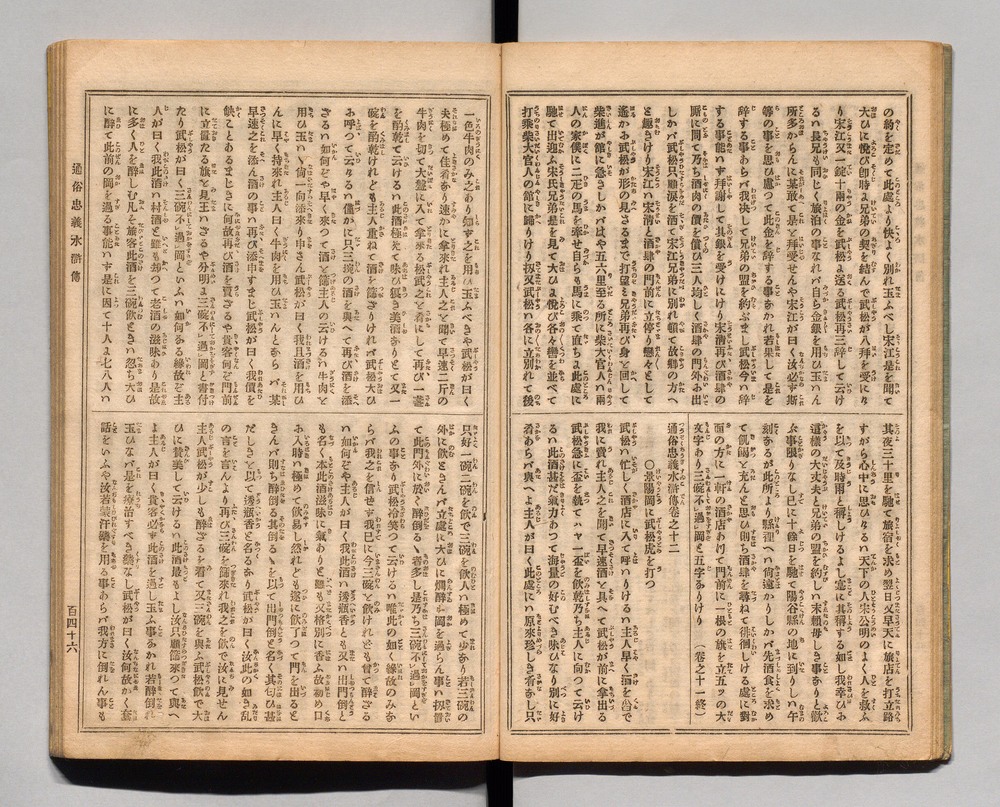 の約を定めて此處より快よく別れ玉ふべし宋江是を聞て
大ひに悅び卽時に兄弟の契を結んで武松が八拜を受にけ
り宋江又一錠十兩の金を武松に送る武松再三辭して云け
るハ長兄も同じく旅泊の事なれバ自ら金銀を用ひ玉ハん
所多からんに某敢て是を拜受せんや宋江が曰く汝必ず斯
等の事を思ひ慮つて此金を辭する事なかれ若果して是を
辭する事あらバ我決して兄弟の盟を約ぶまじ武松今ハ辭
する事能ハず拜謝して其銀を受けにけり宋淸再び酒肆の
厮に間て乃ち酒肉の價を償ひ三人均しく酒肆の門外に出
しかバ武松只顧淚を洒て宋江兄弟に別れ頓て故鄕の方へ
と趣きけり宋江ハ宋淸と酒肆の門前に立停り戀々として
遙かに武松が形の見るまで打望み兄弟再び身を回して
柴進の館に急ぎしかバはや五六里至る所に柴大官人ハ兩
人の家僕に二疋の馬を牽せ自らも馬に乘て直ちに此處に
馳て出迎ふ宋氏兄弟是を見て大ひに悅び各々轡を並べて
打乘柴大官人の館に歸りけり扨又武松ハ各に立別れて後
其夜三十里を馳て旅宿を求め翌日又早天に旅店を打立路
すがら心中に思ひけるハ天下の人宋公明のよく人を救ふ
を以て及時雨と稱しけるよし寔に其稱する如し我幸ひに
這樣の大丈夫と兄弟の盟を約しハ末賴母しき事なりと歡
ぶ事限りなし已に十餘日を馳て陽谷縣の地に到りしハ午
刻なるが此所より縣裡へハ尙遠かりしかバ先酒食を求め
て飢渴を充んと思ひ則ち酒肆を尋ねて徘徊しける處に對
面の方に一軒の酒店ありて門前に一根の旗を立五ツの大
文字あり三碗不過岡と五字ありけり （卷之十一終）
通俗忠義水滸傳卷之十二
○景陽岡に武松虎を打つ
武松ハ忙しく酒店に入て呼ハりけるハ主人早く酒を出で
我に賣れ主人之を聞て早速酒を具へて武松が前に拿出る
武松急に盃を執てハヤ一盃を飮乾ち主人に向つて云け
るハ此酒甚だ氣力あつて海量の好むべき味ひなり別に好
肴あらバ與へよ主人が曰く此處にハ原來珍しき肴なし只
一色牛肉のみこれあり知す之を用ひ玉ふべきや武松が曰く
夫極めて佳肴なり速かに拿來れ主人之を聞て早速二斤の
牛肉を切て大盤に入拿來る松武之を肴にして再び一盞
を酌乾て云けるハ此酒極光て味ひ猥き美酒なりとて又一
碗を酌乾けれども主人重ねて酒を篩ざりけれバ武松大ひ
に呼つて云けるハ儞かに只三碗の酒を與へて再び酒を添
ざるハ如何ぞや早く來つて酒を篩主人の云けるハ牛肉を
用ひ玉ハヾ尙一向添來り申さん武松が曰く我且酒を用ひ
んに早く持來れ主人曰く牛肉を用ひ玉ハんとならバ某
早速之を添ん酒の事ハ再び添申すまじ武松が曰く我價を
缺ことあるまじきに何故再び酒を賣ざるや貴客何ぞ門前
に立置たる旗を見玉ハざるや分明に三碗不過岡と書付
たり武松が曰く三碗不過岡といふハ如何なる緣故ぞ主
人が曰く我此酒ハ村酒と雖ども却つて老酒の滋味あり是故
に多く人を醉しむ凡そ旅客此酒を三碗飮ときハ忽ち大ひ
に醉て此前の岡を過る事能ハず是に因て十人に七八人ハ
只好一碗二碗を飮で三碗を飮人ハ極めて少なり若三碗の
外に飮ときんバ立處に大ひに爛醉し岡を過らん事ハ扨置
て此門外に於て醉倒るヽ者多し是乃ち三碗不過岡とい
ふの事なり武松冷笑つて云けるハ唯此の如く緣故のみな
らバ我之を信せず我已に今三碗を飮けれども曾て醉ざる
ハ如何ぞや主人が曰く我此酒ハ透瓶香と名又ハ出門倒と
も名く本此酒滋味に氣あり且よく又格別に香よ故初め口
に入時ハ極めて飮易し然れども遂に飮了つて門を出ると
きんバ則ち醉倒る其のたるヽを以て出門倒と名く其匂ひ甚
だしきを以て透瓶香と名るなり武松が曰く汝此の如き亂
の言を言んより再び三碗を篩來れ我之を飮で汝に見せん
主人武松が少しも醉ざるを看て又三碗を與ふ武松飮で大
ひに贊美して云けるハ此酒最もよし汝只顧篩來つて與へ
よ主人が曰く貴客必ず此酒を過し玉ふ事なかれ若醉倒れ
玉ひなバ是を療治すべき藥なし武松が曰く汝何故かく套
話をいふや汝若蒙汗藥を用る事あらバ我方に倒れん事も
通俗忠義水滸傳
百四十六